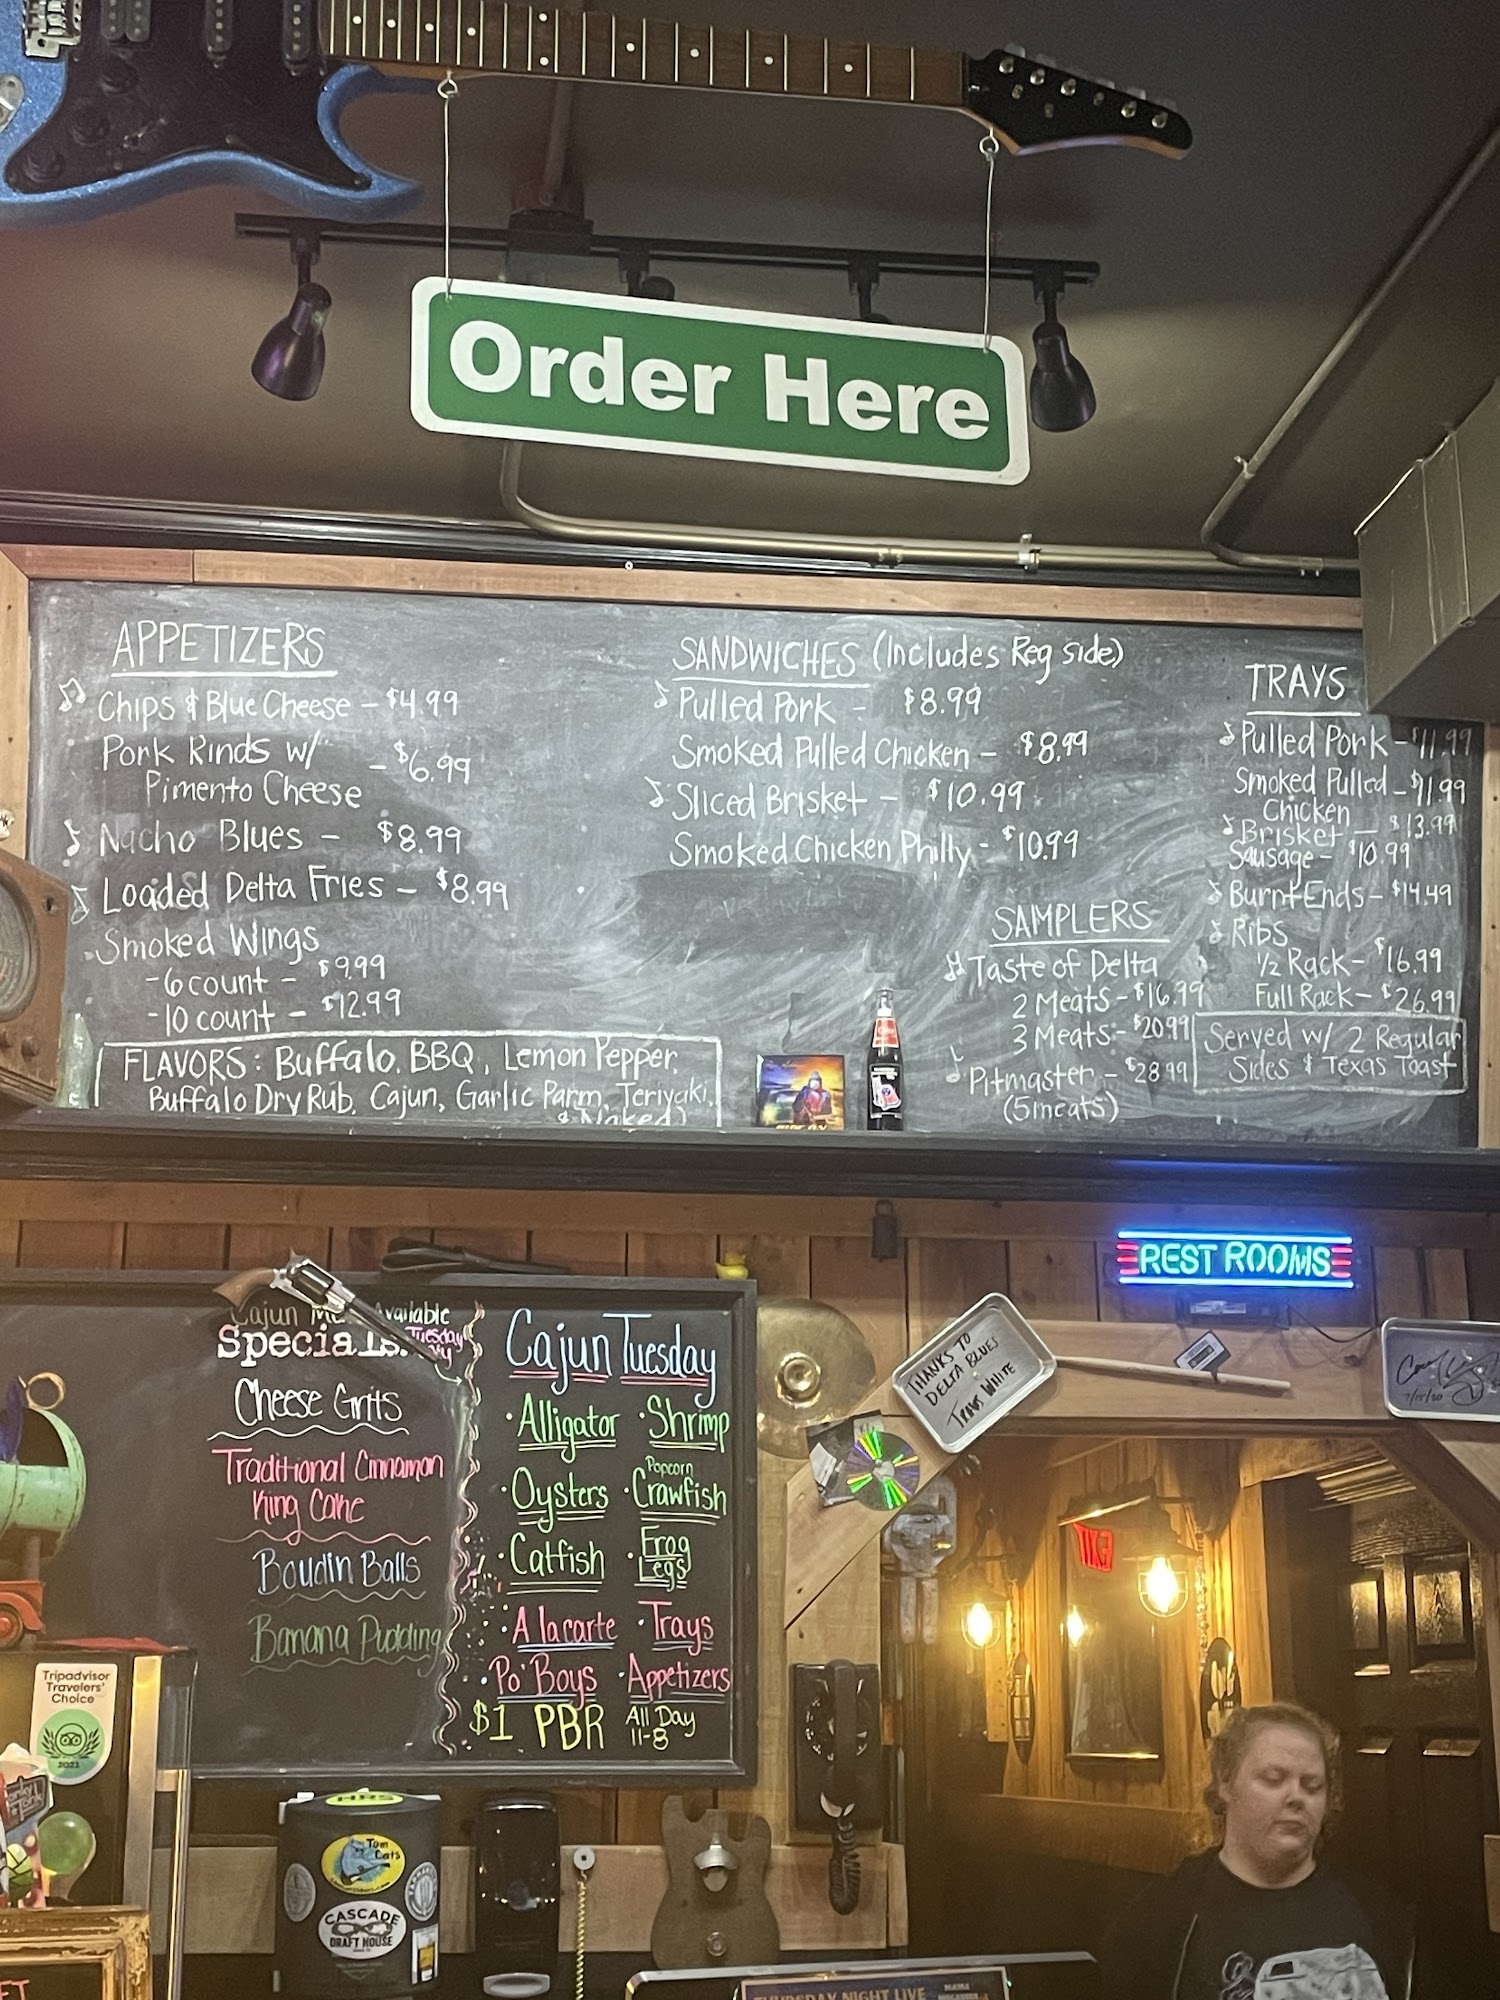 Order Here
APPETIZERS
Chips & Blue Cheese - $4.99
Pork Rinds w/ - $6.99
Pimento Cheese
Nacho Blues - $8.99
Loaded Delta Fries - $8.99
Smoked Wings
-6 count - $9.99
-10 count - $12.99
FLAVORS: Buffalo, BBQ, Lemon Pepper,
Buffalo Dry Rub, Cajun, Garlic Parm, Teriyaki,
& Naked)
SANDWICHES (Includes Reg side)
Pulled Pork - $8.99
Smoked Pulled Chicken - $8.99
Sliced Brisket - $10.99
Smoked Chicken Philly - $10.99
SAMPLERS
Taste of Delta
2 Meats - $16.99
3 Meats - $20.99
Pitmaster - $28.99
(5 meats)
TRAYS
Pulled Pork - $11.99
Smoked Pulled - $11.99
Chicken
Brisket - $13.99
Sausage - $10.99
Burnt Ends - $14.49
Ribs
1/2 Rack - $16.99
Full Rack - $26.99
Served w/ 2 Regular
Sides & Texas Toast
REST ROOMS
Cajun Available
Specials Tuesday
Cheese Grits
Traditional Cinnamon
King Cake
Boudin Balls
Banana Pudding
Cajun Tuesday
· Alligator · Shrimp
· Oysters · Popcorn
Crawfish
· Catfish · Frog
Legs
· A lacarte · Trays
· Po' Boys · Appetizers
$1 PBR All Day
11-8
THANKS TO
DELTA BLUES
WHITE
EXIT
Tripadvisor
Travelers'
Choice
2021
HRS
Tom
Cats
CASCADE
DRAFT HOUSE
THURSDAY NIGHT LIVE